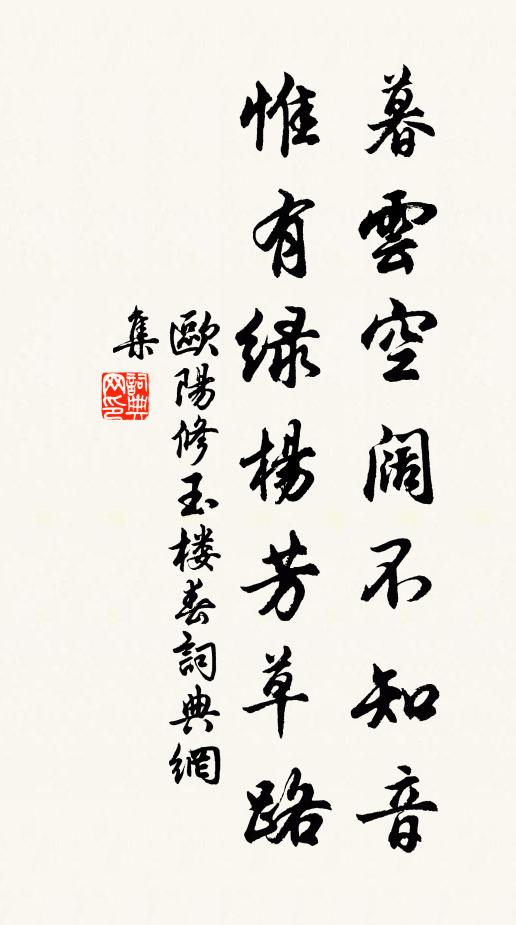 暮雲空阔不知音
惟有绿楊芳草路
歐陽修玉楼春詞典網
集
詞典
网印